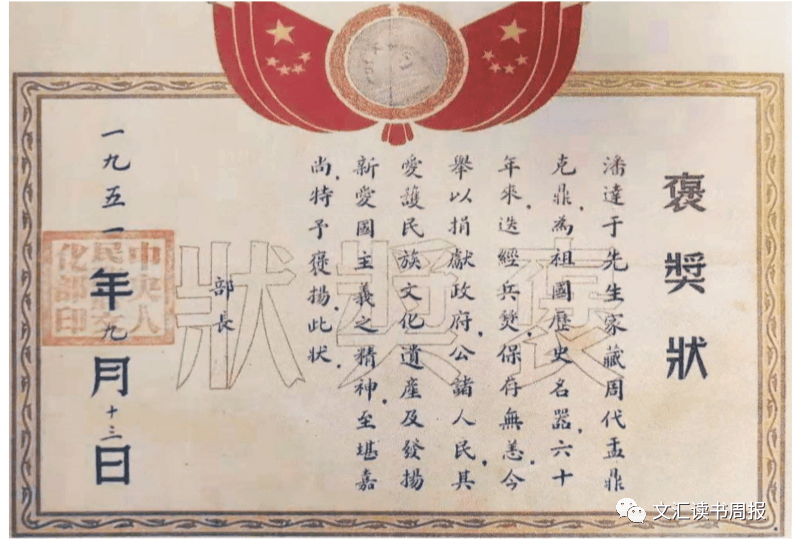 褒獎狀
潘達于先生家藏周代盂鼎
克鼎,為祖國歷史名器,六十
年來,迭經兵燹,保存無恙,今
舉以捐獻政府,公諸人民,其
愛護民族文化遺產及發揚
新愛國主義之精神,至堪嘉
尚,特予褒揚,此狀.
部長
一九五一年九月十三日
褒獎狀
中央人
民文
化部印
文汇读书周报